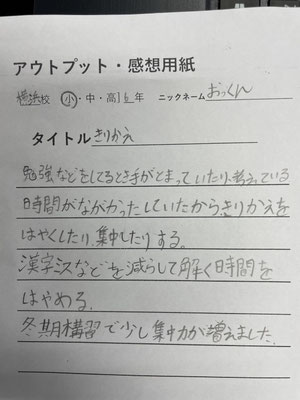 アウトプット・感想用紙
横浜校 小・中・高 1 6年 ニックネーム おっくん
タイトル きりかえ
勉強などをしてるとき手がとまっていたり、考えている
時間がながかったしていたからきりかえを
はやくしたり、集中したりする。
漢字ミスなどを減らして解く時間を
はやめる。
冬期講習で少し集中力が増えました。